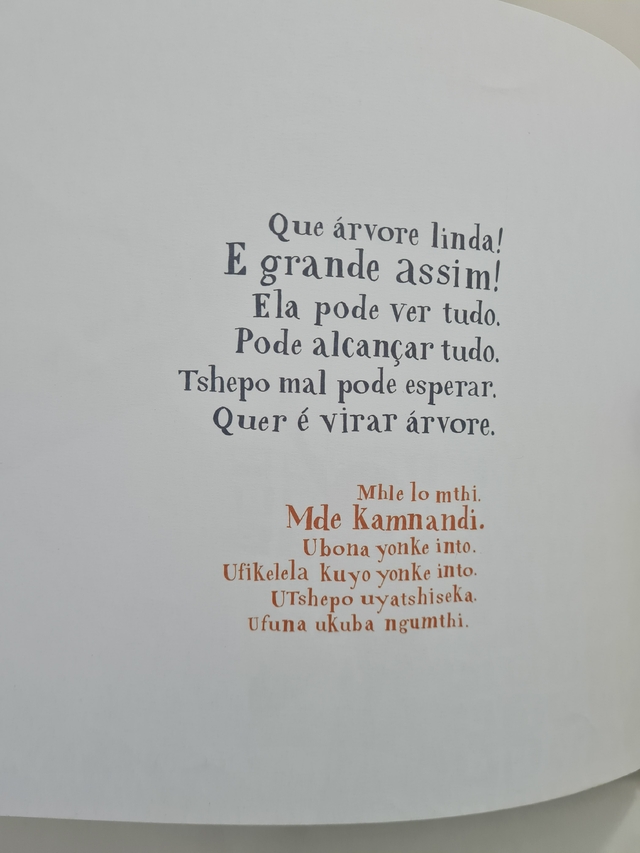 Que árvore linda!
E grande assim!
Ela pode ver tudo.
Pode alcançar tudo.
Tshepo mal pode esperar.
Quer é virar árvore.
Mhle lo mthi.
Mde kamnandi.
Ubona yonke into.
Ufikelela kuyo yonke into.
UTshepo uyatshiseka.
Ufuna ukuba ngumthi.